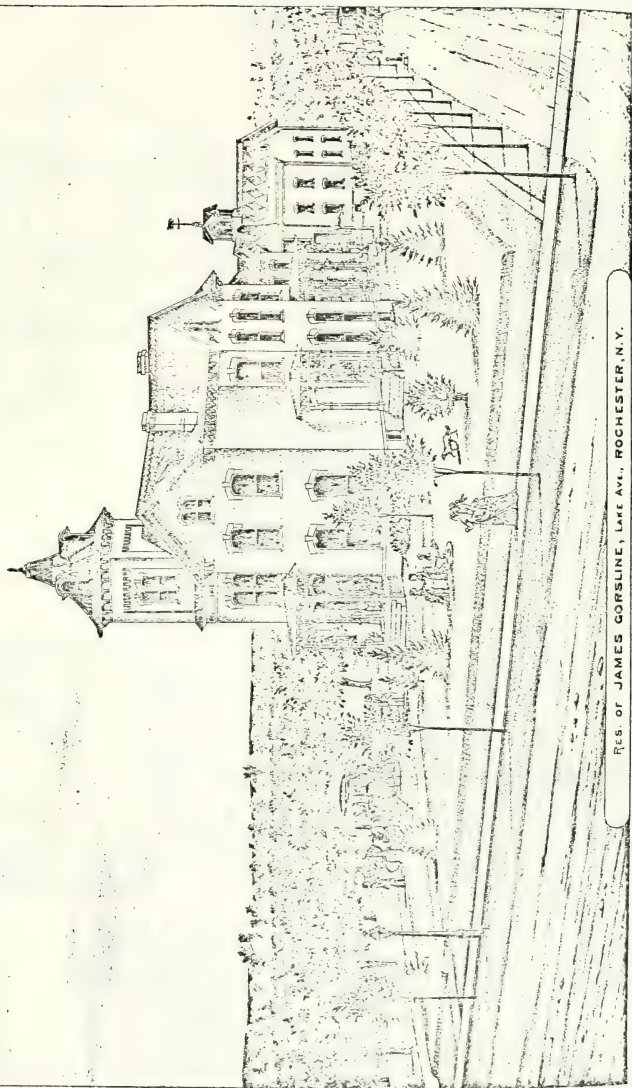 RES. OF JAMES GORSLINE, LAKE AVE., ROCHESTER, N.Y.